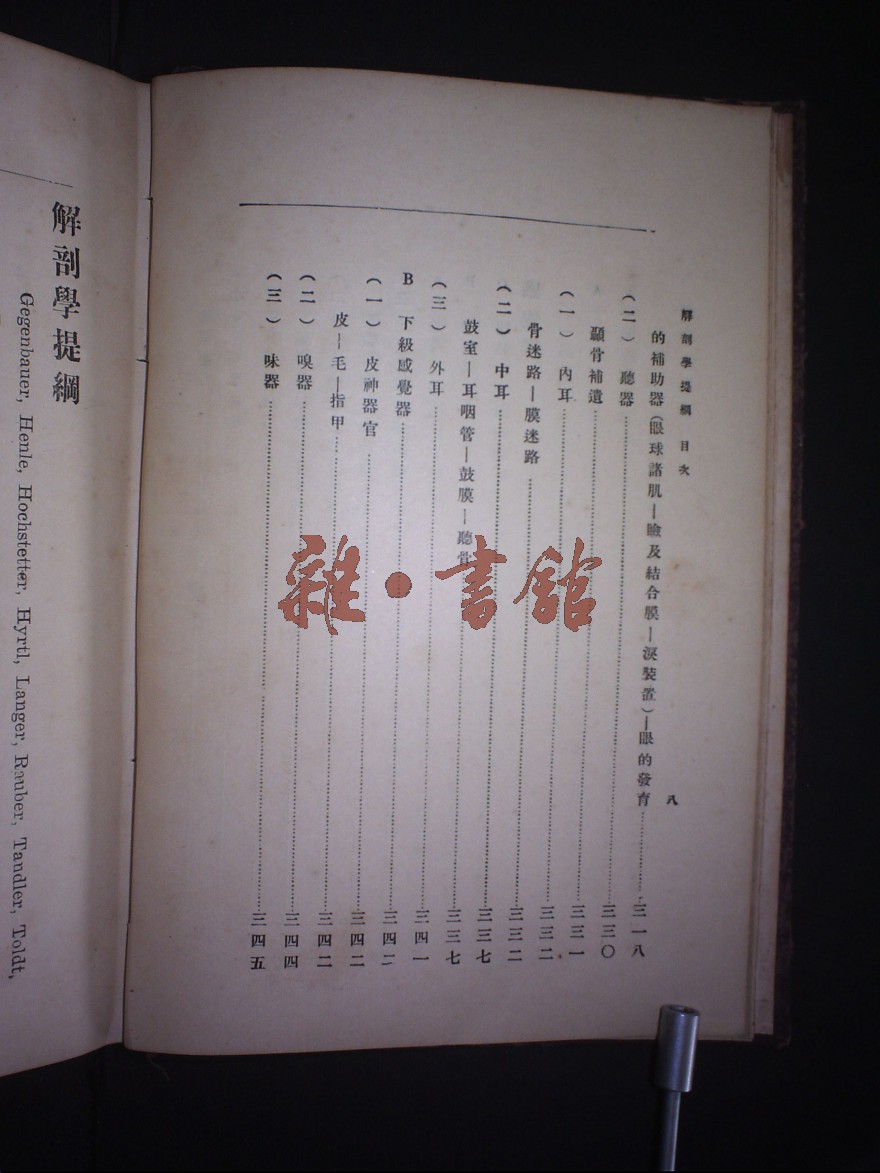 解剖學提綱 目次 八
的補助器(眼球諸肌—瞼及結合膜—淚裝置)—眼的發育……三一八
(二) 聽器……三三〇
顳骨補遺……三三一
(一) 內耳……三三二
骨迷路—膜迷路……三三二
(二) 中耳……三三七
鼓室—耳咽管—鼓膜—聽骨……三三七
(三) 外耳……三四一
B 下級感覺器……三四二
(一) 皮神器官……三四二
皮—毛—指甲……三四二
(二) 嗅器……三四四
(三) 味器……三四五
解剖學提綱
Gegenbauer, Henle, Hochstetter, Hyrtl, Langer, Rauber, Tandler, Toldt,
雜·書館